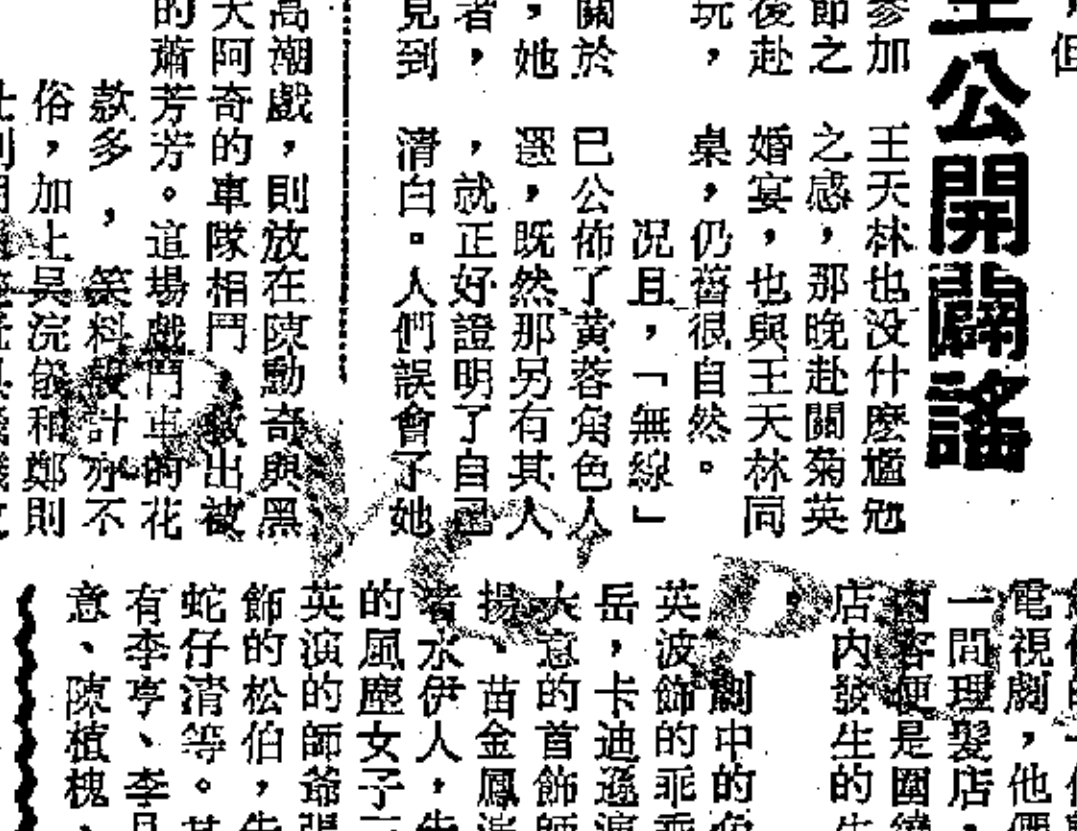 但
公開闢謠
參加
節之
後赴
玩，
關於
，她
者，
見到
王天林也没什麽尷尬
之感，那晚赴關菊英
婚宴，也與王天林同
桌，仍舊很自然。
況且，「無線」
已公佈了黃蓉角色人
選，既然那另有其人
，就正好證明了自
清白。人們誤會了她
高潮戲，則放在陳勳奇與黑
大阿奇的車隊相鬥，出被
的蕭芳芳。這場戲鬥車的花
款多，笑料設計亦不
俗，加上吳浣儀和鄭則
電視劇，他
一間理髮店，
內容便是圍繞
店内發生的
劇中的
英波飾的乖乖
岳，卡迪遜演
大意的首飾師
揚、苗金鳳演
水伊人，
的風塵女子
英演的師爺
飾的松伯，
蛇仔清等。其
有李亨、李
意、陳植槐、